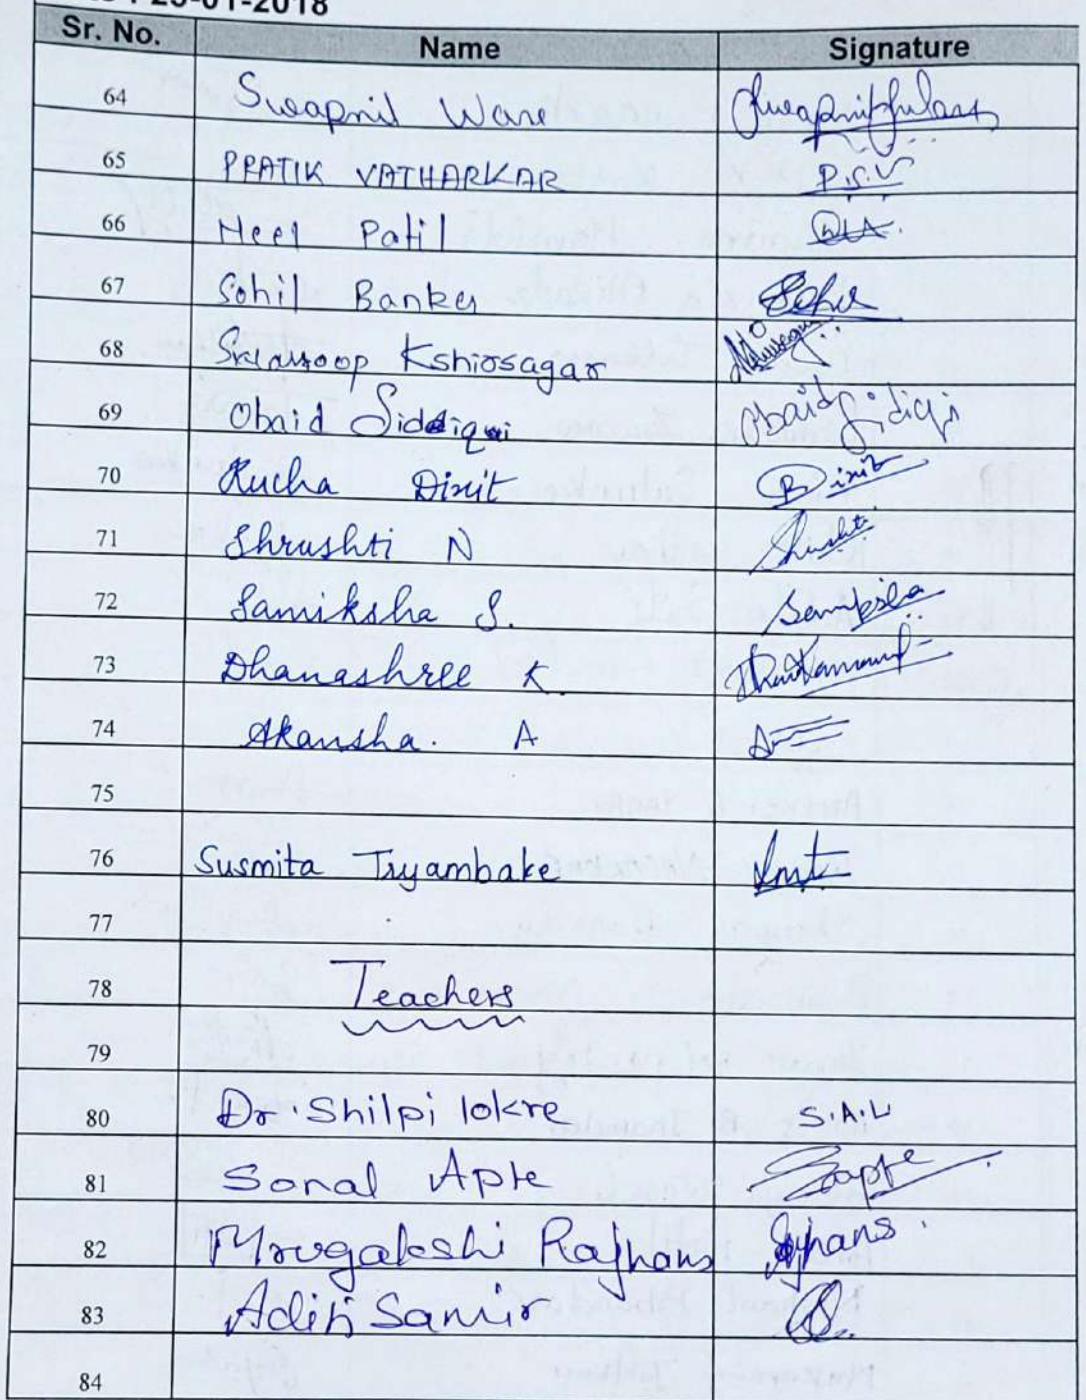 23-01-2018
Sr. No. Name Signature
64 Swapnil Ware
65 PRATIK VATHARKAR P.S.V
66 Neel Patil
67 Sohil Banker
68 Kshirsagar
69 Obaid Siddiqui Obaid Sidiqi
70 Rucha Dixit Dixit
71 Shrushti N Shrushti
72 Samiksha S. Samiksha
73 Dhanashree K.
74 Akansha. A
75
76 Susmita Tryambake
77
78 Teachers
79
80 Dr. Shilpi lokre S.A.L
81 Sonal Apte Sapte
82 Mrugakshi Rajhans
83 Aditi Samir
84